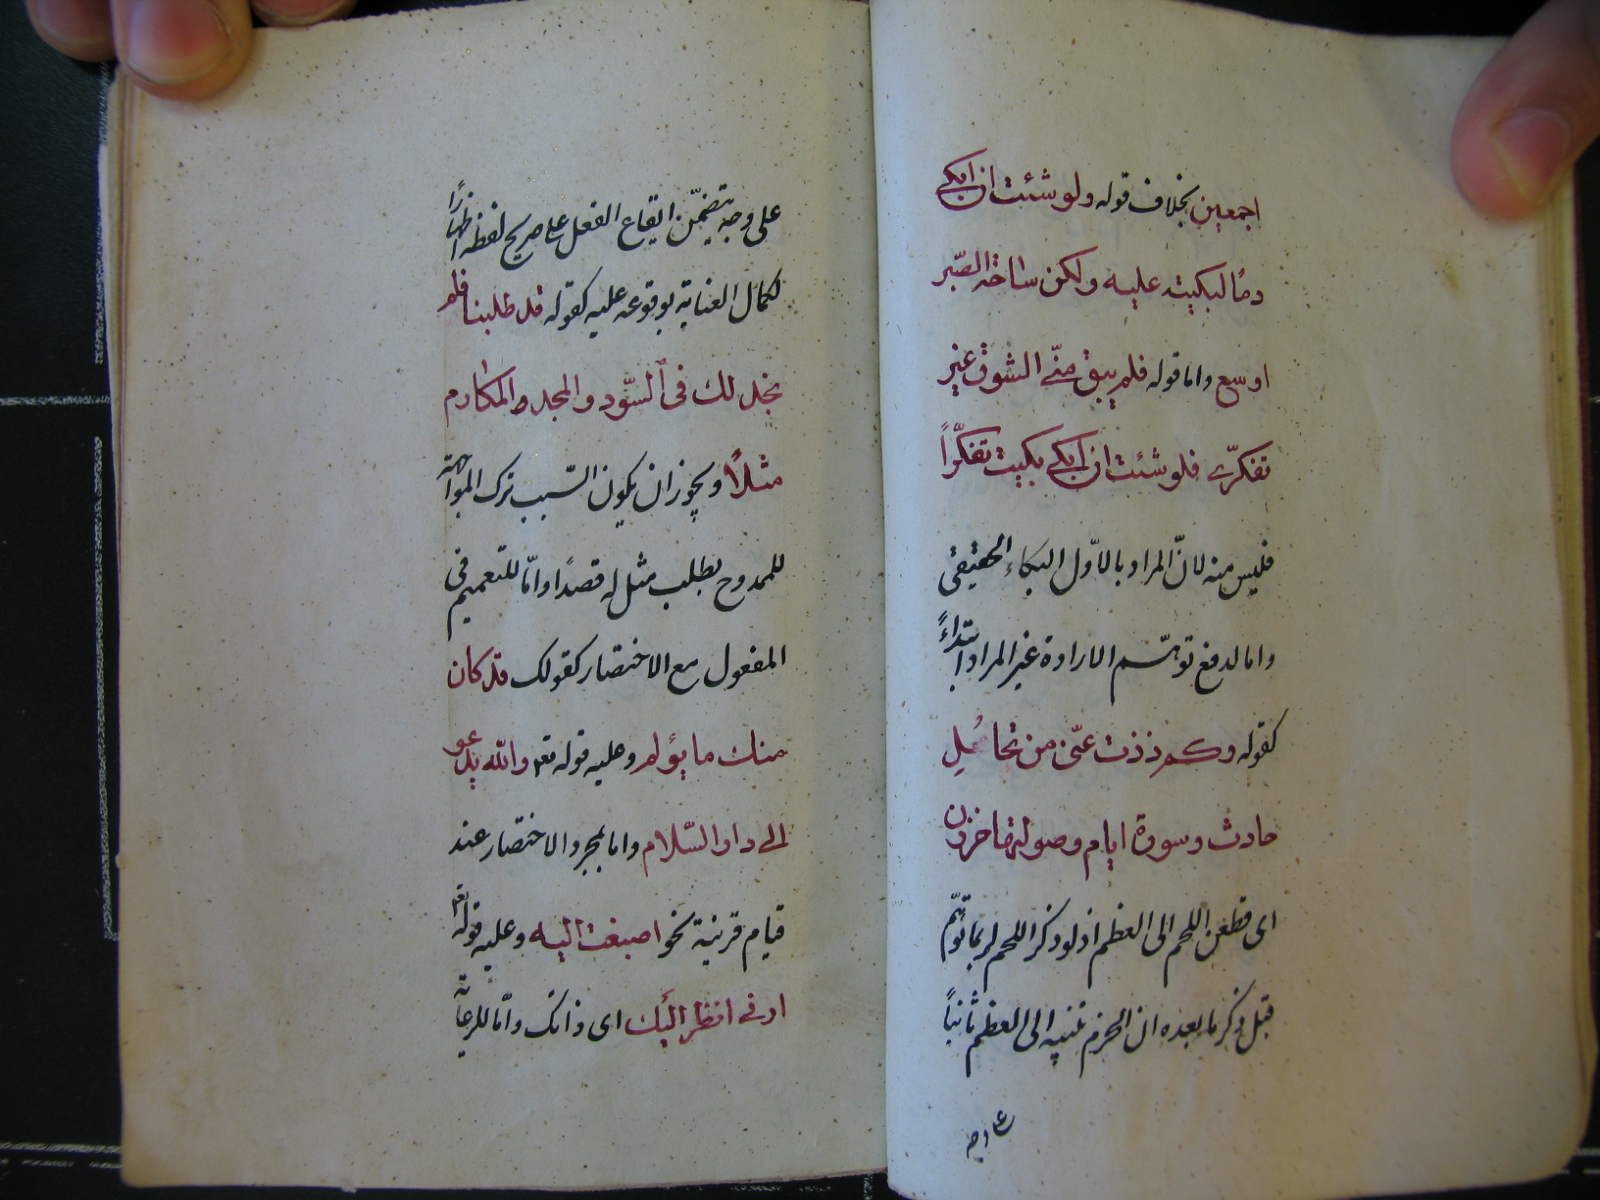 اجمعين بخلاف قوله ولو شئت ان ابكى
دمًا لبكيته عليه ولكن ساحة الصّبر
اوسع واما قوله فلم يبق منّى الشوق غير
تفكرّى فلو شئت ان ابكى بكيت تفكرّاً
فليس منه لانّ المراد بالاوّل البكاء الحقيقى
واما لدفع توهّم الارادة غير المراد ابتداءً
كقوله وكم ذذت عنّى من تحامُلِ
حادث وسورة ايام وصولتها حززن
اى قطعن اللحم الى العظم اذ لو ذكر اللحم لربما توهّم
قبل ذكر ما بعده ان الحزم تنبيه الى العظم ثانياً
على وجه
على وجه يتضمّن ايقاع الفعل على صريح لفظه اظهارًا
لكمال العناية بوقوعه عليه كقوله قد طلبنا فلم
نجد لك فى السّودد والمجد والمكارم
مثلاً ويجوز ان يكون السّبب ترك المواجهة
للممدوح بطلب مثل له قصدًا وامّا للتعميم فى
المفعول مع الاختصار كقولك قد كان
منك ما يؤلم وعليه قوله تعا والله يدعو
الى دار السّلام واما لمجرد الاختصار عند
قيام قرينة نحو اصغيت اليه وعليه قوله تعا
ارنى انظر اليك اى ذاتك وامّا للرعاية